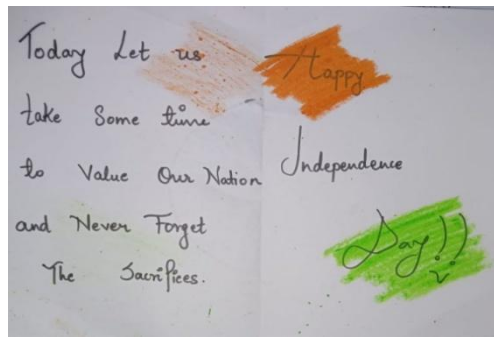 Today Let us
take Some time
to Value Our Nation
and Never Forget
The Sacrifices.
Happy
Independence
Day!!